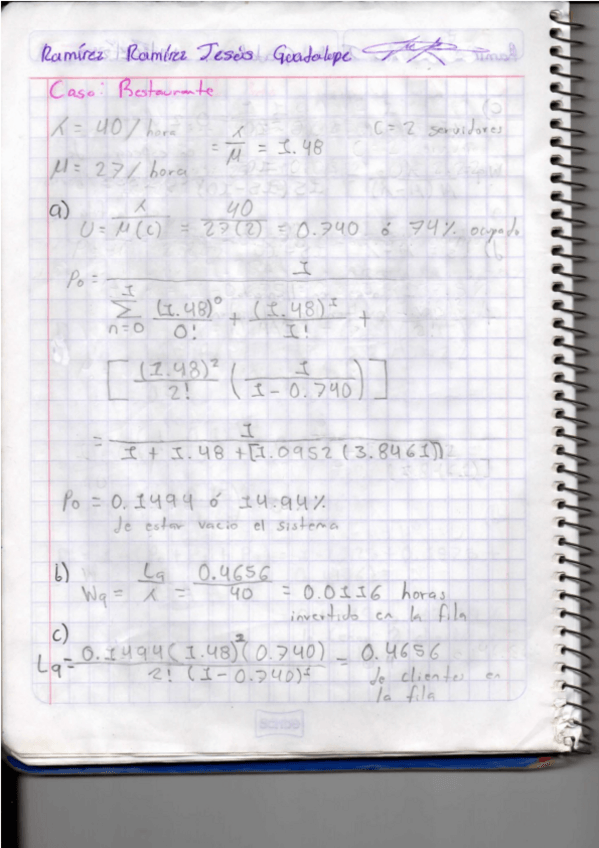 Ramírez Ramírez Jesús Guadalupe
Caso: Restaurante
λ = 40/hora
= λ/μ = 1.48
C = 2 servidores
μ = 27/hora
a) U = λ/μ(c) = 40/27(2) = 0.740 ó 74% ocupado
P₀ = 1
∑ n=0 1 (1.48)⁰/0! + (1.48)¹/1! +
[(1.48)²/2! (1/1-0.740)]
= 1/1 + 1.48 + [1.0952(3.8461)]
P₀ = 0.1494 ó 14.94%
de estar vacio el sistema
b) Wq = Lq/λ = 0.4656/40 = 0.0116 horas
invertido en la fila
c)
Lq = 0.1494(1.48)²(0.740)/2!(1-0.740)² = 0.4656
de clientes en
la fila
scribe